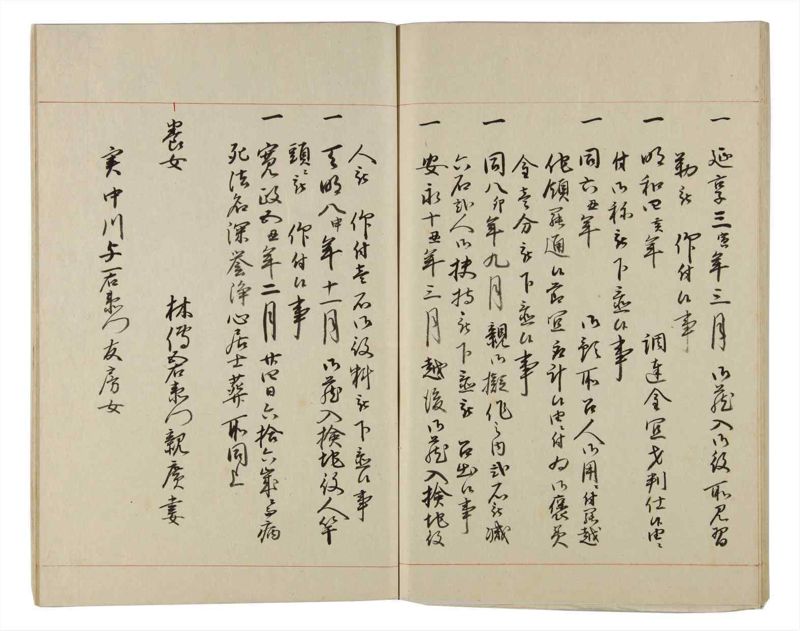 一 延享三寅年三月 御蔵入御役所見習
勤被 仰付候事
一 明和四亥年 調達金宜才判仕候ニ
付御称被下置候事
一 同六丑年 御新所百人御用ニ付罷越
他領罷通候節宜取計候ニ付為御褒美
金壱分被下置候事
一 同八卯年九月 親御擬作之内弐石被減
六石弐人御扶持被下置被 召出候事
一 安永十丑年三月 越後御蔵入検地役
人被 仰付壱石御役料被下置候事
一 天明八申年十一月 御蔵入検地役人竿
頭被 仰付候事
一 寛政五丑年二月廿四日六拾六歳ニ而病
死法名深誉浄心居士葬所同上
養女
林傳右衛門親広妻
実中川与右衛門友房女